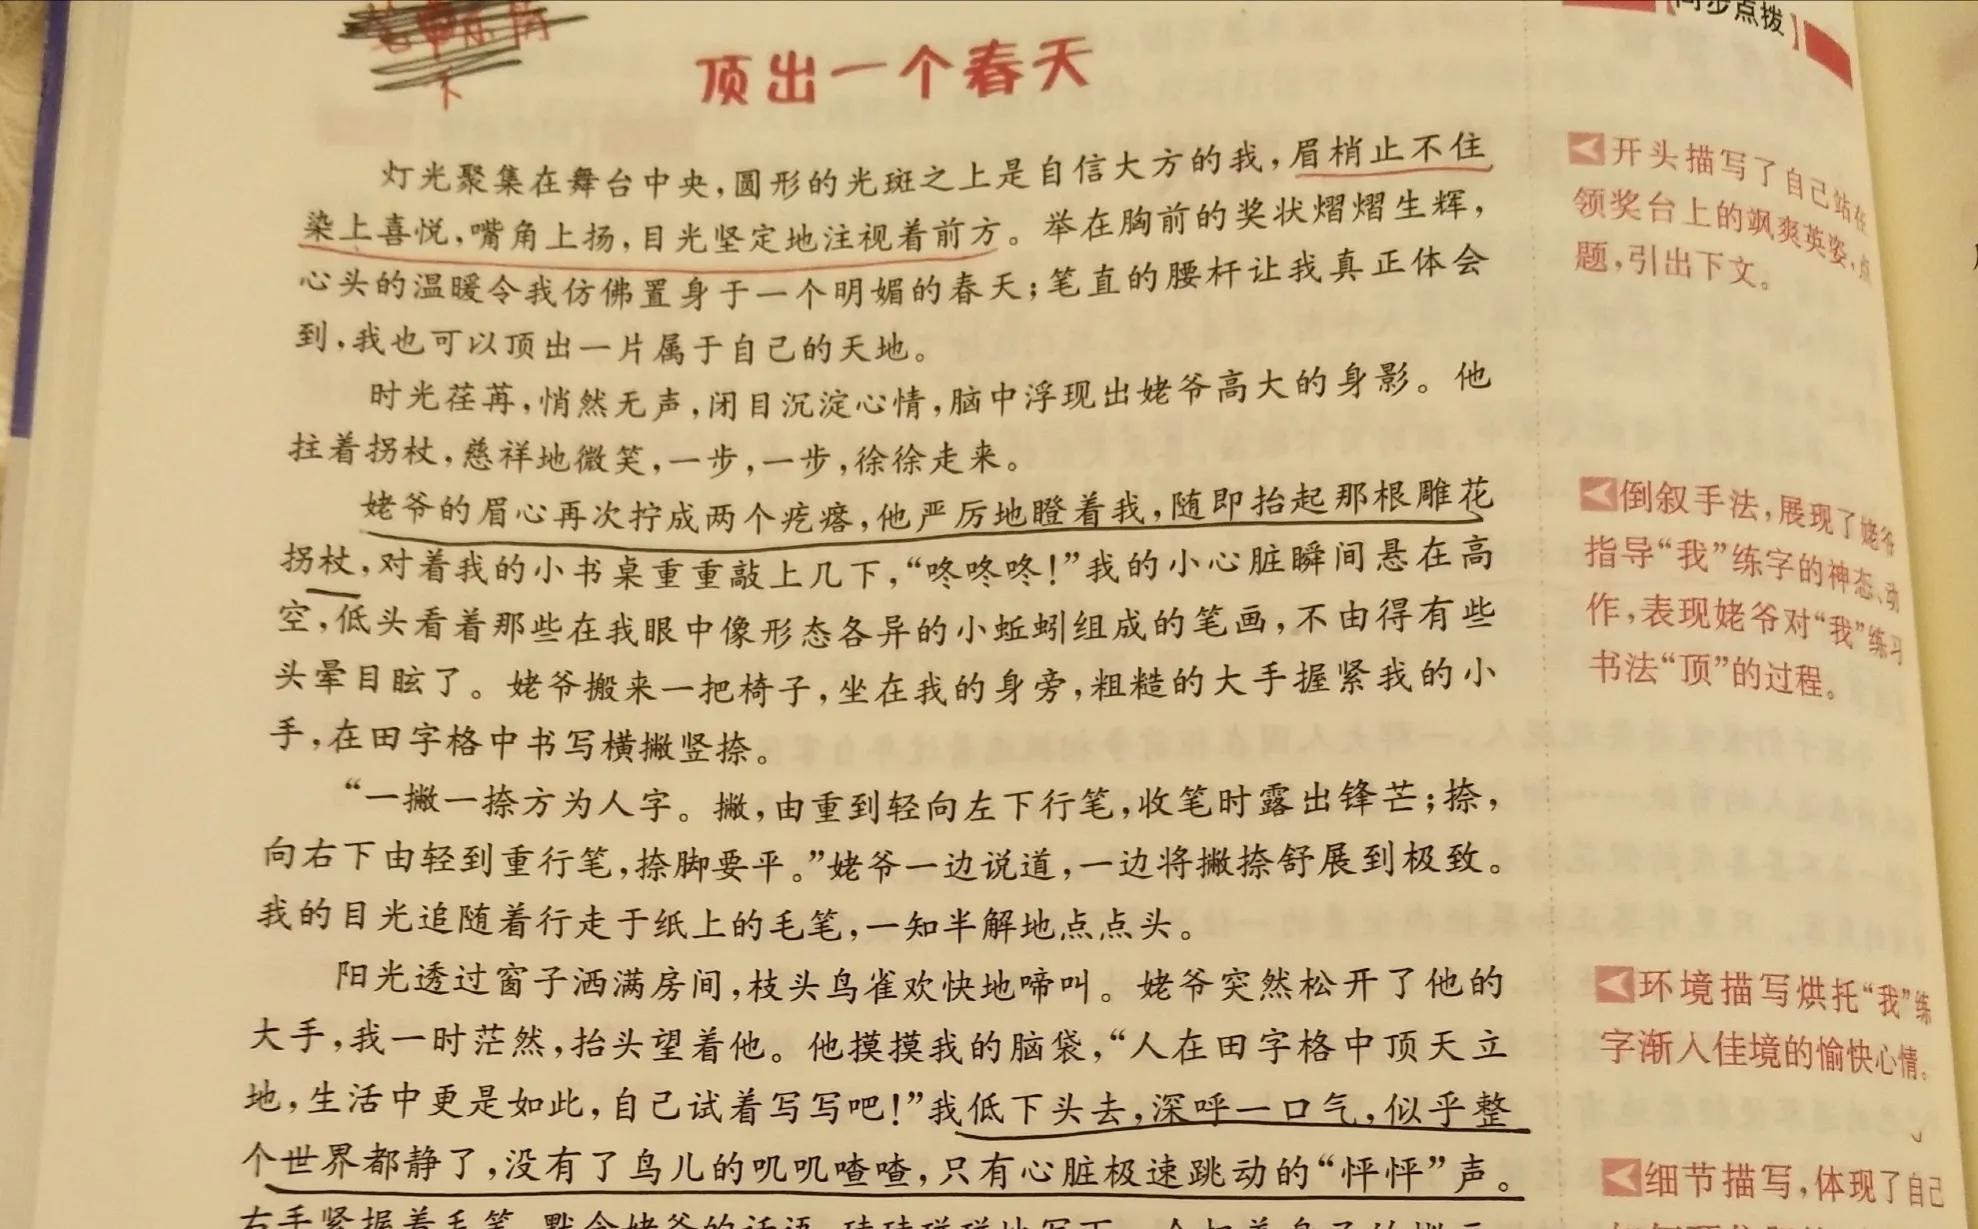 同步点拨】
顶出一个春天
灯光聚集在舞台中央，圆形的光斑之上是自信大方的我，眉梢止不住
染上喜悦，嘴角上扬，目光坚定地注视着前方。举在胸前的奖状熠熠生辉，
心头的温暖令我仿佛置身于一个明媚的春天；笔直的腰杆让我真正体会
到，我也可以顶出一片属于自己的天地。
时光荏苒，悄然无声，闭目沉淀心情，脑中浮现出姥爷高大的身影。他
拄着拐杖，慈祥地微笑，一步，一步，徐徐走来。
姥爷的眉心再次拧成两个疙瘩，他严厉地瞪着我，随即抬起那根雕花
拐杖，对着我的小书桌重重敲上几下，“咚咚咚！”我的小心脏瞬间悬在高
空，低头看着那些在我眼中像形态各异的小蚯蚓组成的笔画，不由得有些
头晕目眩了。姥爷搬来一把椅子，坐在我的身旁，粗糙的大手握紧我的小
手，在田字格中书写横撇竖捺。
“一撇一捺方为人字。撇，由重到轻向左下行笔，收笔时露出锋芒；捺，
向右下由轻到重行笔，捺脚要平。”姥爷一边说道，一边将撇捺舒展到极致。
我的目光追随着行走于纸上的毛笔，一知半解地点点头。
阳光透过窗子洒满房间，枝头鸟雀欢快地啼叫。姥爷突然松开了他的
大手，我一时茫然，抬头望着他。他摸摸我的脑袋，“人在田字格中顶天立
地，生活中更是如此，自己试着写写吧！”我低下头去，深呼一口气，似乎整
个世界都静了，没有了鸟儿的叽叽喳喳，只有心脏极速跳动的“怦怦”声。
右手紧握着毛笔，默念姥爷的话语
开头描写了自己站在
领奖台上的飒爽英姿，点
题，引出下文。
倒叙手法，展现了姥爷
指导“我”练字的神态、动
作，表现姥爷对“我”练习
书法“顶”的过程。
环境描写烘托“我”练
字渐入佳境的愉快心情。
细节描写，体现了自己